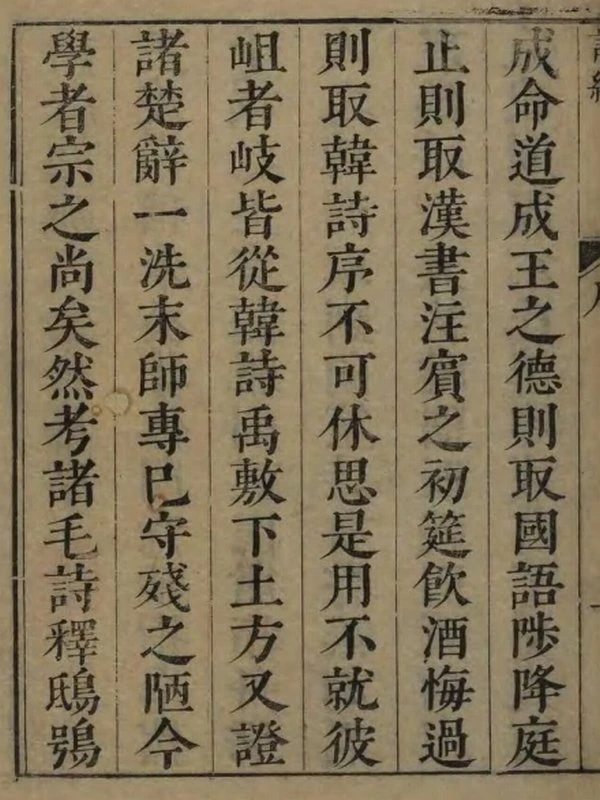 成命道成王之德則取國語陟降庭
止則取漢書注賓之初筵飲酒悔過
則取韓詩序不可休思是用不就彼
岨者岐皆從韓詩禹敷下土方又證
諸楚辭一洗末師專已守殘之陋今
學者宗之尚矣然考諸毛詩釋鴟鴞